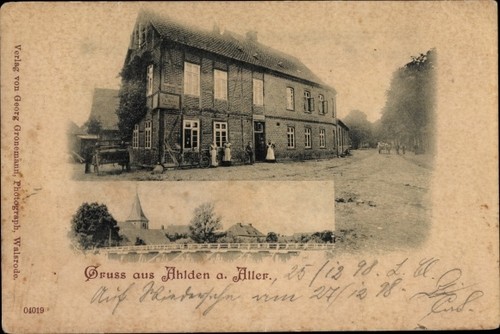 Verlag von Georg Gronemann, Photograph, Walsrode.
Gruss aus Ahlden a. Aller. 25/12 98.
Auf Wiedersehn am 27/12 98.
04019